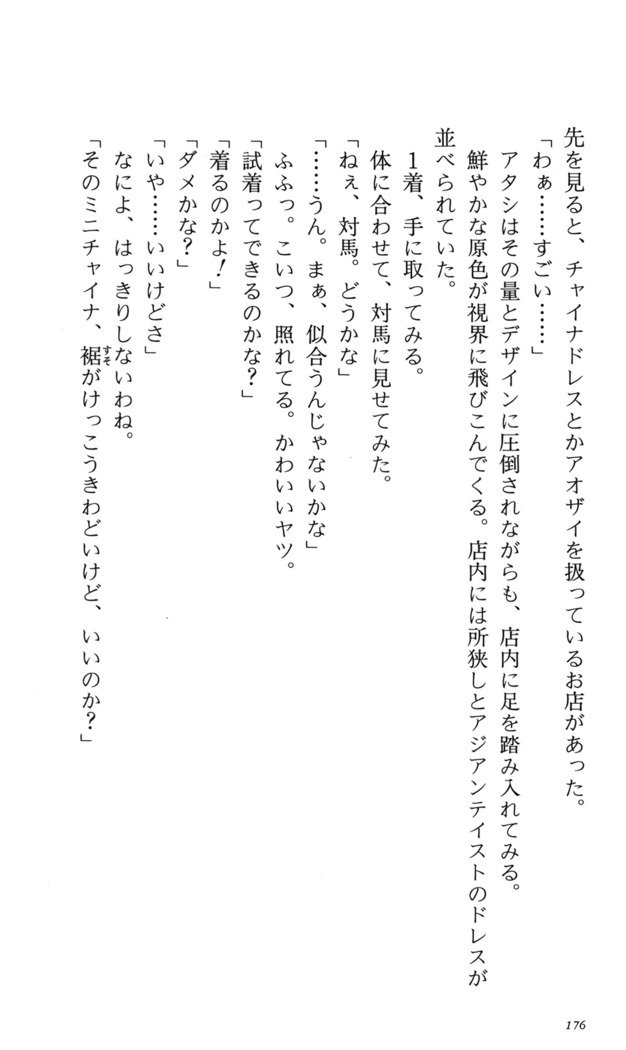 先を見ると、チャイナドレスとかアオザイを扱っているお店があった。
「わぁ……すごい……」
アタシはその量とデザインに圧倒されながらも、店内に足を踏み入れてみる。
鮮やかな原色が視界に飛びこんでくる。店内には所狭しとアジアンテイストのドレスが
並べられていた。
1着、手に取ってみる。
体に合わせて、対馬に見せてみた。
「ねぇ、対馬。どうかな」
「……うん。まぁ、似合うんじゃないかな」
ふふっ。こいつ、照れてる。かわいいヤツ。
「試着ってできるのかな？」
「着るのかよ！」
「ダメかな？」
「いや……いいけどさ」
なによ、はっきりしないわね。
「そのミニチャイナ、裾すそがけっこうきわどいけど、いいのか？」
176